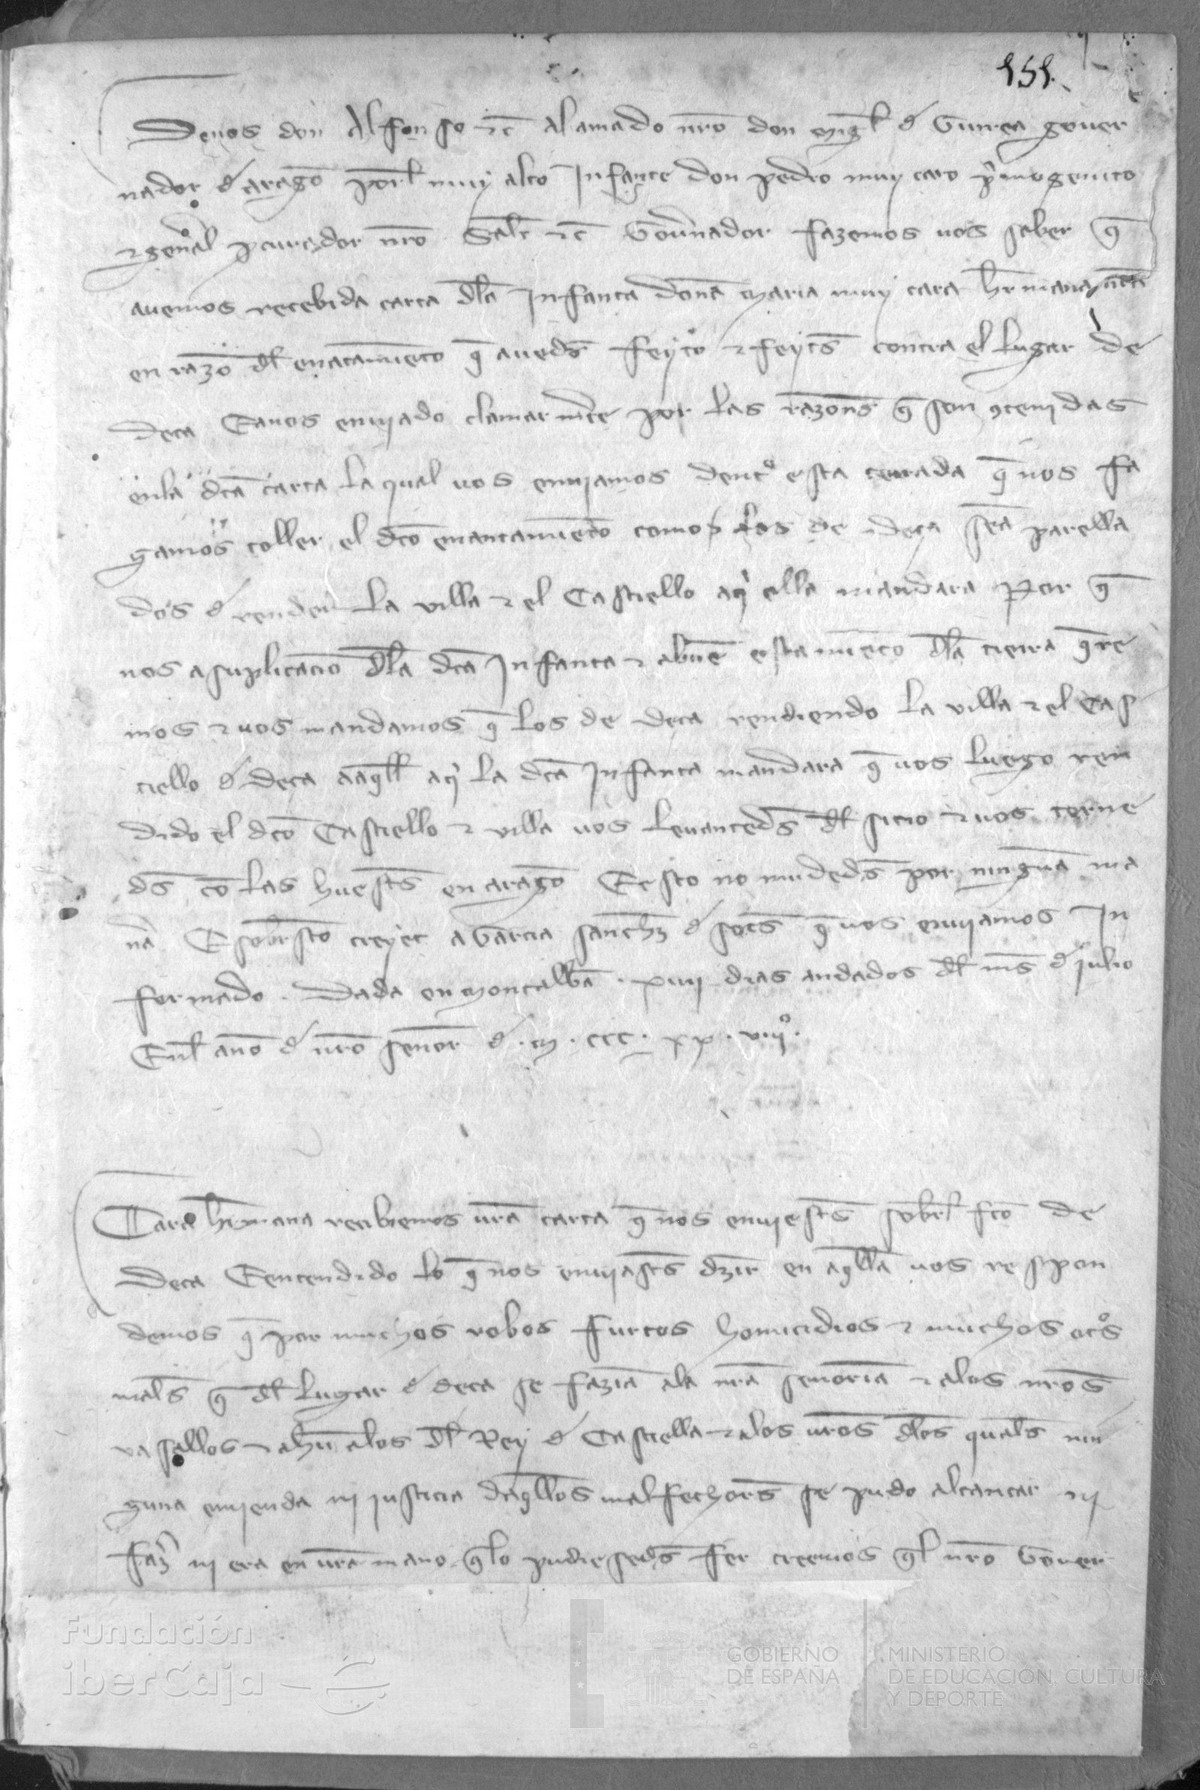 151.
Denos don Alfonso etc̄ Al amado nr̄o don mig̃l d Gurrea gouer
nador d aragō por̃l muy alto Infante don pedro muy caro p̃mogenito
et geñal ꝓcurador nr̄o Salt̄ etc̄ Gou̾nador fazemos uos saber q̄
auemos recebida carta dl̄a Infanta dona maria muy cara hr̄mana nr̄a
en razō dl̄ enantamiēto q̄ aueds̄ feyto et feyts̄ contra el lugar de
deça E a nos enuiado clamar mēte por las razons̄ q̄ son ꝯtenidas
en la dc̄a carta la qual uos enuiamos dent̊ esta cerrada q̄ nos fa
gamos toller el dc̄o enantamiēto como los de deça sea parella
dos d render la villa et el Castiello a q̄ ella mandara Por q̄
nos a suplicaciō dl̄a dc̄a Infanta et a buē estamiēto dl̄a tierra q̄re
mos et uos mandamos q̄ los de deça rendiendo la villa et el Cas
tiello d deça a aq̄ll a q̄ la dc̄a Infanta mandara q̄ uos luego ren
dido el dc̄o Castiello et villa uos leuanteds̄ dl̄ sitio et uos torne
ds̄ cō las huests̄ en aragō E esto no mudeds̄ por ninguna ma
nā E sobr̄sto creyet a Garcia sanchz̄ d sots̄ q̄ uos enuiamos In
formado . Dada en montalbā . xiiii dias andados dl̄ ms̄ d julio
Enl̄ ano d nr̄o senor d . m . ccc . xx . viiº .
Cara hr̄mana recibiemos ur̄a carta q̄ nos enuiests̄ sobr̄l fc̄o de
Deça E entendido lo q̄ nos enuiasts̄ dzir en aq̄lla uos respon
demos q̄ por muchos robos furtos homicidios et muchos ot̊s
mals̄ q̄ dl̄ lugar d deça se faziā ala nr̄a senoria et alos nr̄os
vasallos et ahū alos dl̄ Rey d Castiella et alos ur̄os dlos quals̄ nin
guna emienda ni justicia daq̄llos malfechors̄ se pudo alcançar ni
faz̄ ni era en ur̄a mano q̄lo pudieseds̄ fer creemos q̄l nr̄o Gouer
Fundación
iberCaja
GOBIERNO
DE ESPAÑA
MINISTERIO
DE EDUCACIÓN, CULTURA
Y DEPORTE